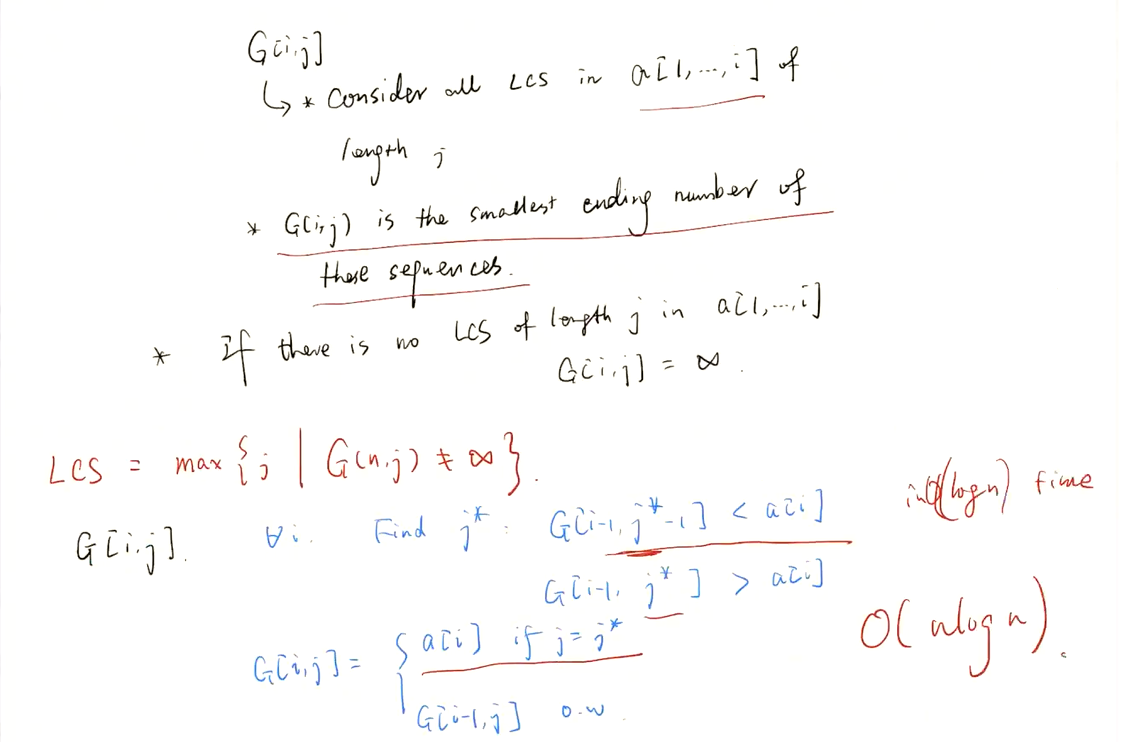 G[i,j]
* Consider all LCS in a[1,...,i] of
length j
* G(i,j) is the smallest ending number of
these sequences.
* If there is no LCS of length j in a[1,...,i]
G[i,j] = ∞.
LCS = max { j | G(n,j) ≠ ∞ }.
G[i,j]. ∀i. Find j* : G[i-1, j*-1] < a[i] in O(log n) time
G[i-1, j*] > a[i]
G[i,j] = { a[i] if j = j*
G[i-1,j] o.w.
O(n log n).